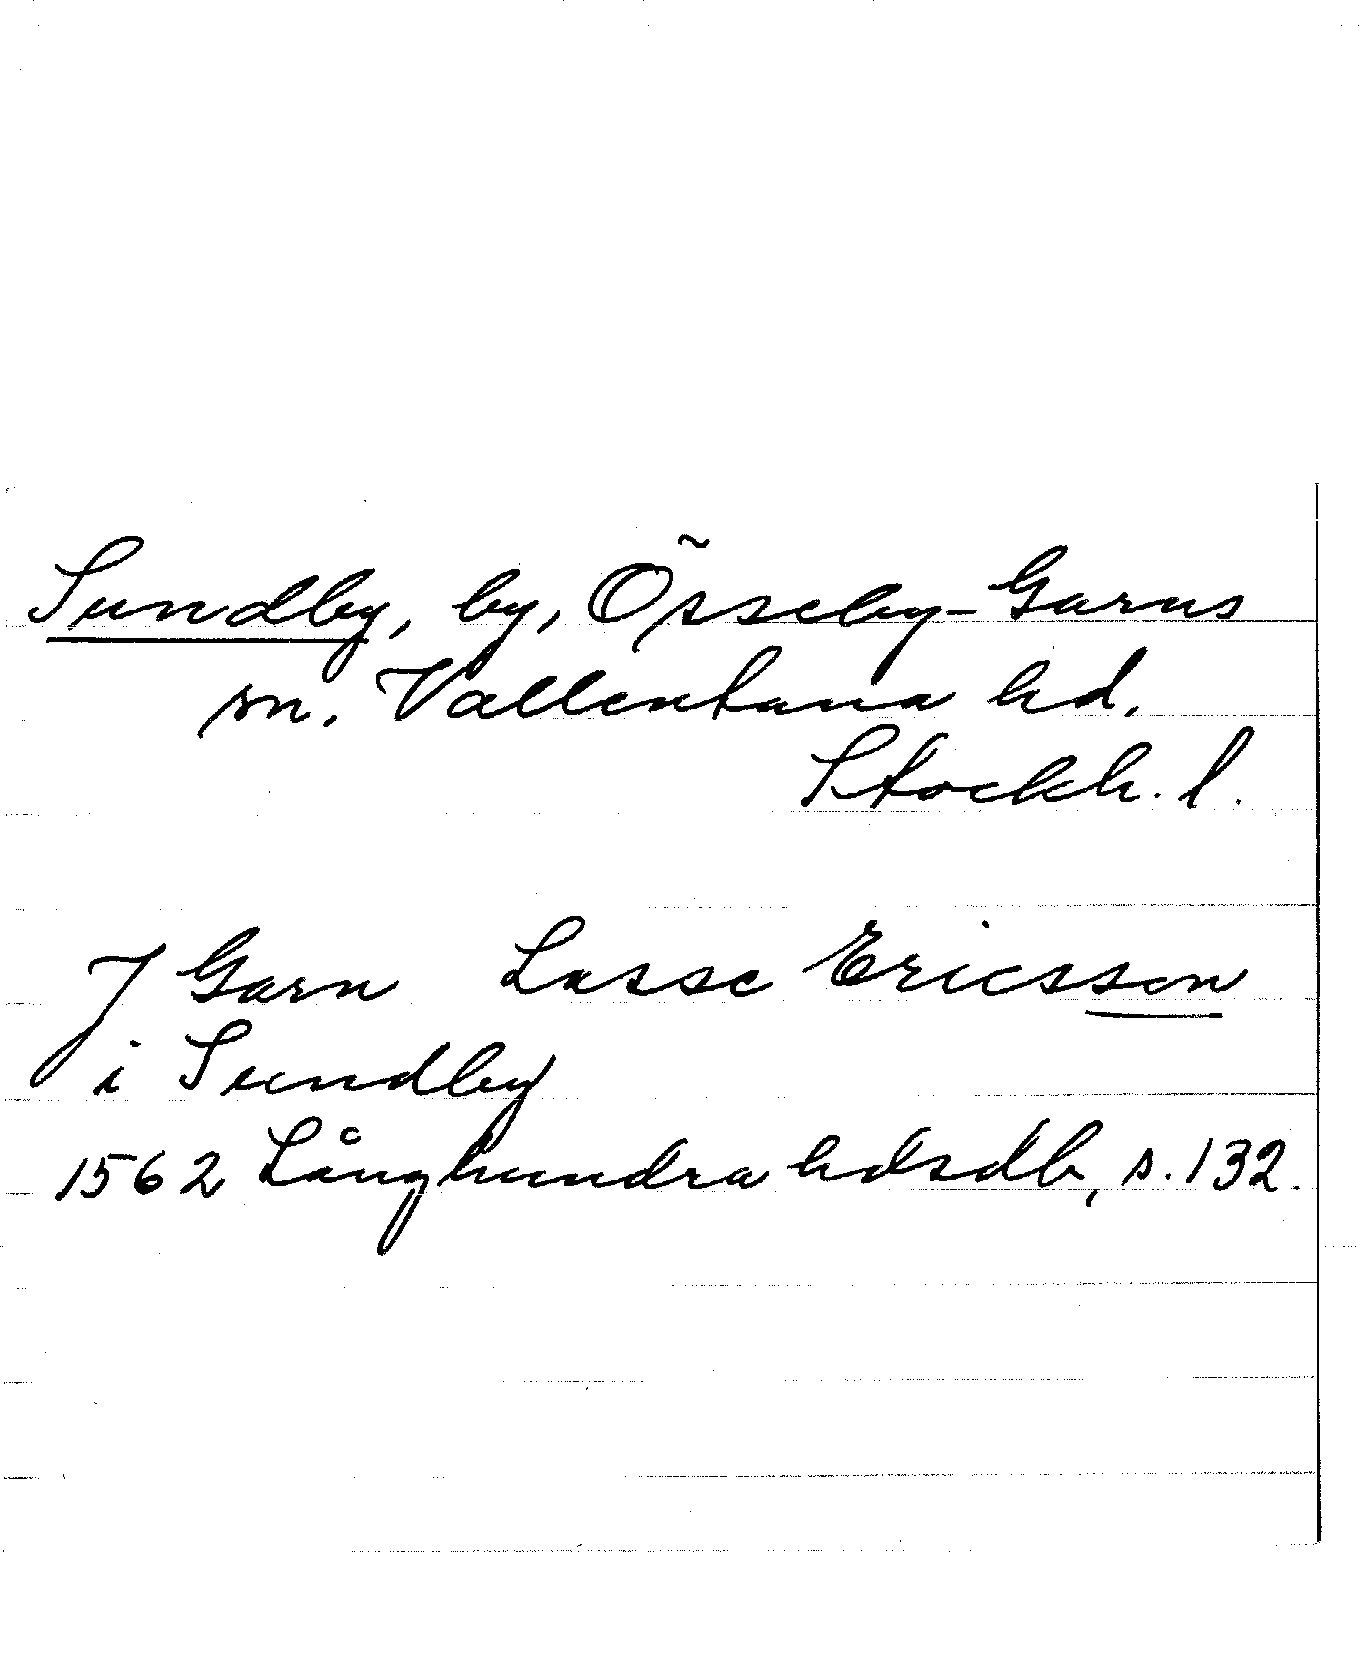 Sundby, by, Össeby-Garns
sn. Vallentuna hd.
Stockh. l.
J Garn Lasse Ericsson
i Sundby
1562 Långhundra hdsdb, s. 132.